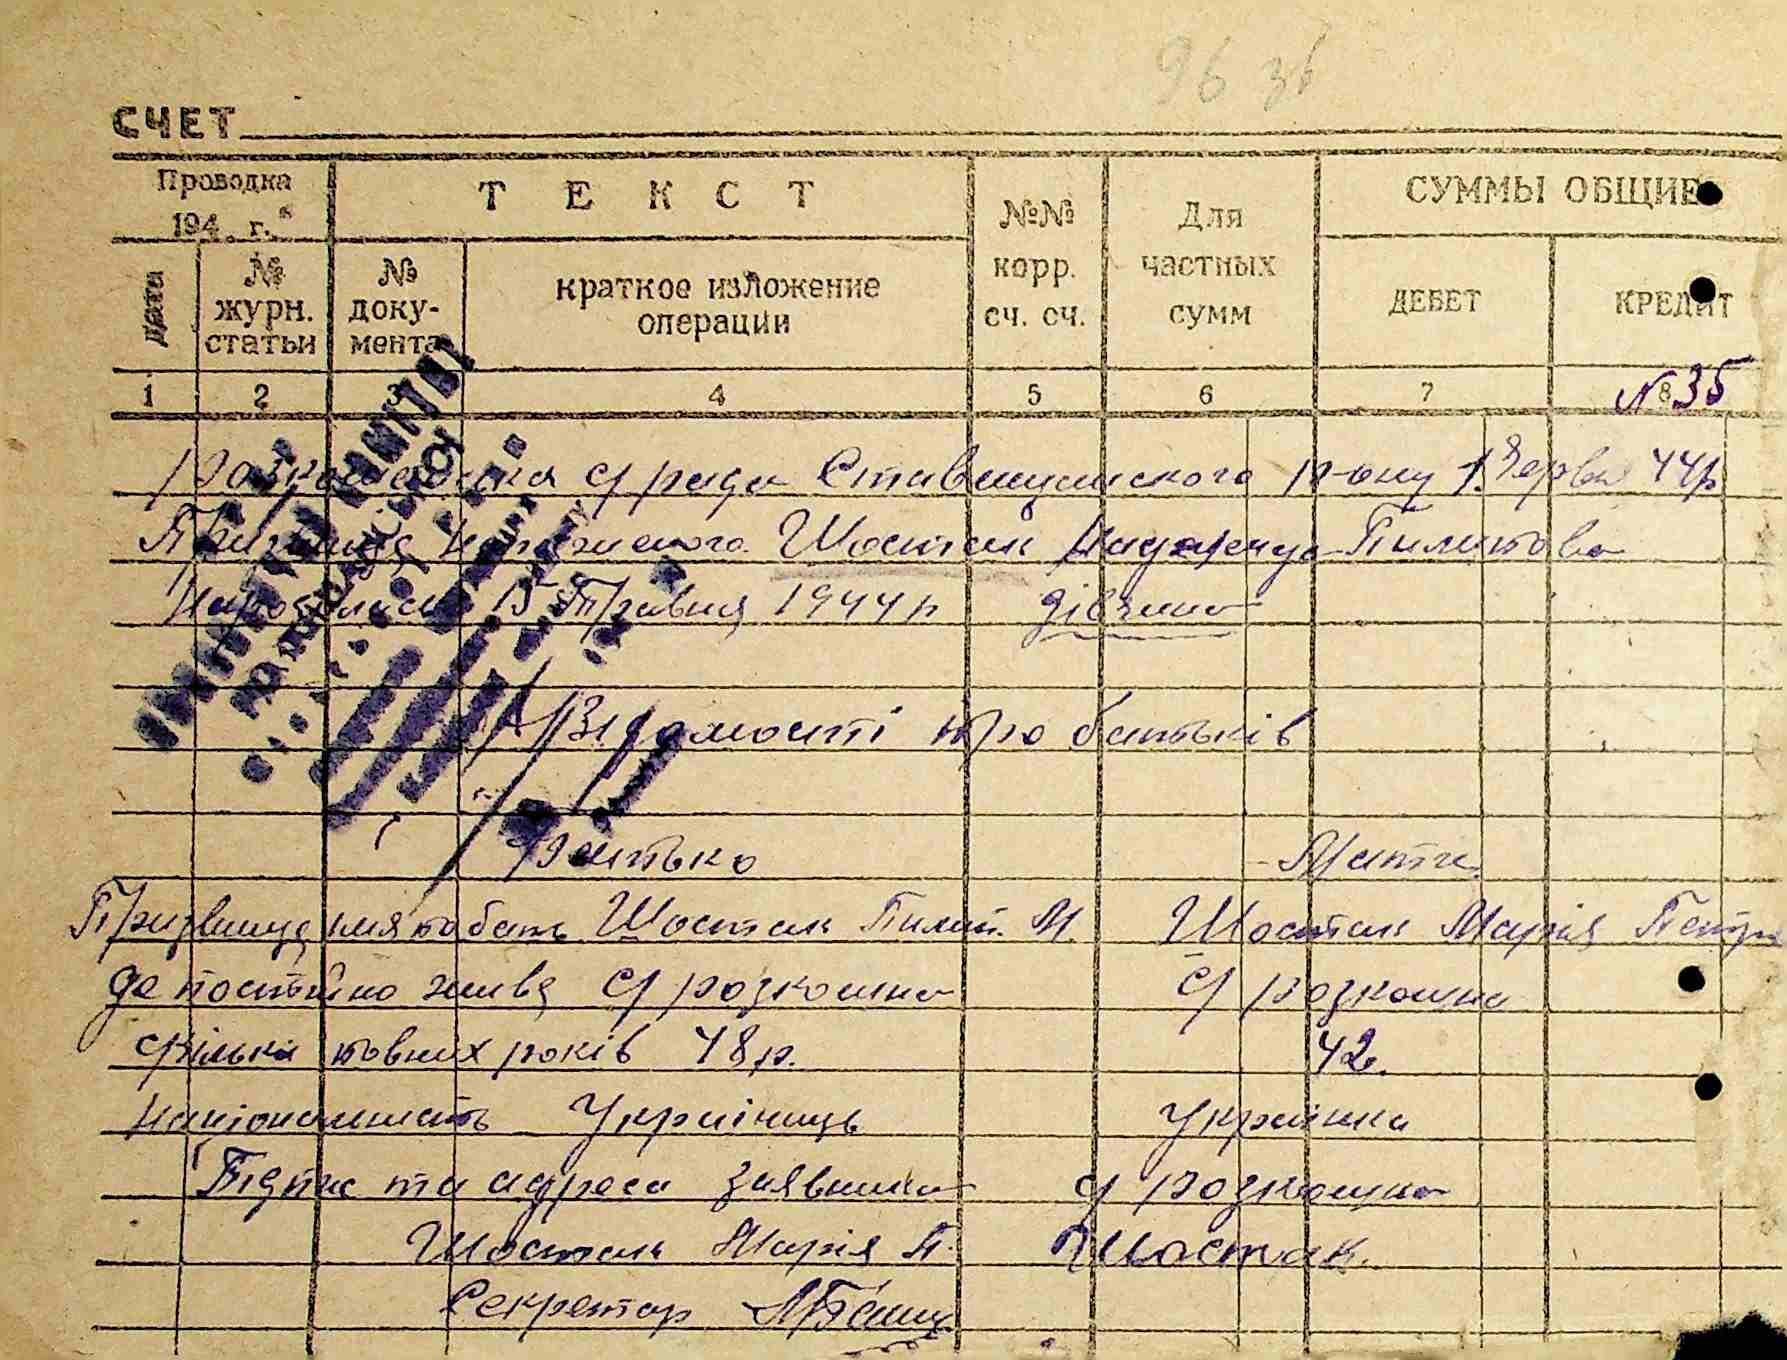 96 зв
СЧЕТ
Проводка
194 г.
ТЕКСТ
№№
корр.
сч. сч.
Для
частных
сумм
СУММЫ ОБЩИЕ
Дата
№
журн.
статьи
№
доку-
мента
краткое изложение
операции
ДЕБЕТ
КРЕДИТ
1 2 3 4 5 6 7 8
№ 35
с/рада Ставищанского р-ону 1. Червня 44р
Призвище Шостак Надежда Пилипова
Народилась 15 Травня 1944р дівчина
Відомості про батьків
Батько Мати
Призвище імя по бать Шостак Пилип. М. Шостак Марія Петр
де постійно живе с/ розкошна с/ розкошна
скілька повних років 48 р. 42.
національность Українець Українка
Підпис та адреса заявника с/ розкошна
Шостак Марія П. Шостак.
Секретар